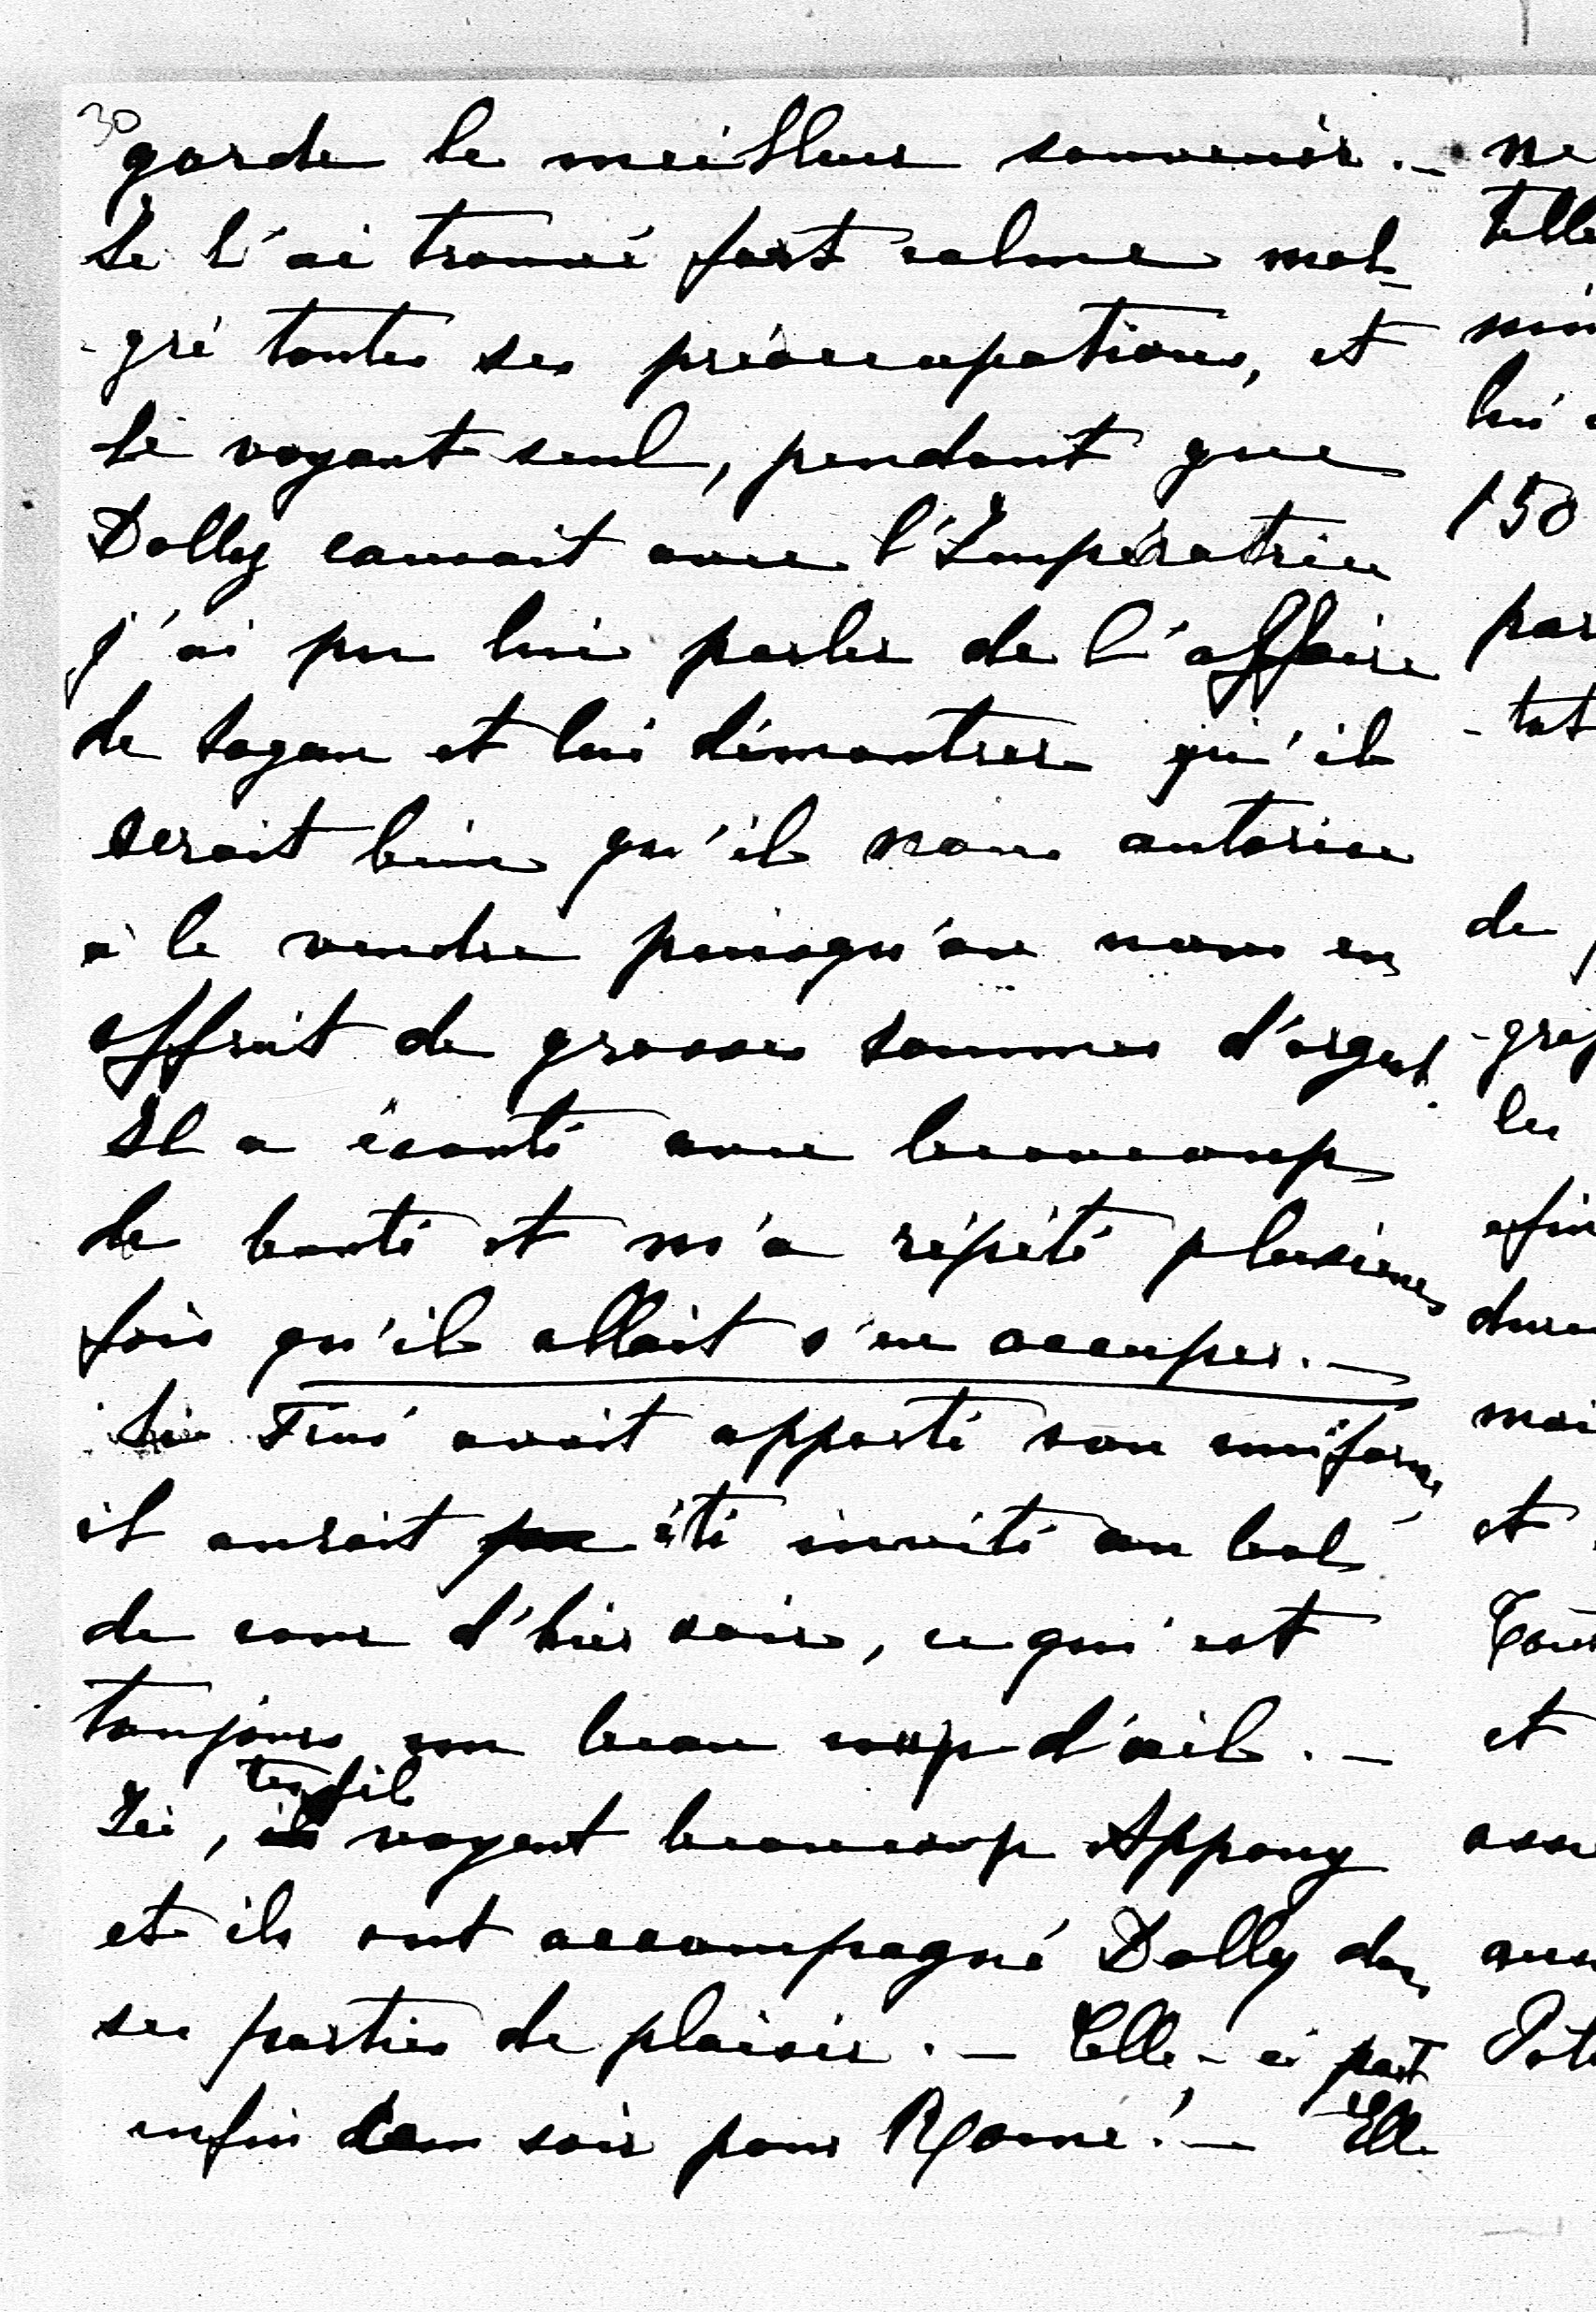 30
garde le meilleur souvenir. —
Je l'ai trouvé fort calme mal-
-gré toutes ses préoccupations, et
le voyant seul, pendant que
Dolly causait avec l'Impératrice
j'ai pu lui parler de l'affaire
de Sagan et lui démontrer qu'il
serait bien qu'il nous autorise
à le vendre puisqu'on nous en
offrait de grosses sommes d'argent.
Il a écouté avec beaucoup
de bonté et m'a répété plusieurs
fois qu'il allait s'en occuper. —
Si avait apporté son uniforme
il aurait pu été invité au bal
de cour d'hier soir, ce qui est
toujours un beau coup d'œil. —
tes fils
Ici, ils voyent beaucoup Appony
et ils ont accompagné Dolly dans
ses parties de plaisir. — Celle-ci part
enfin soir pour Rome! — Elle
ne
telle
lui
150
par
-tat
de
les
afin
et
et